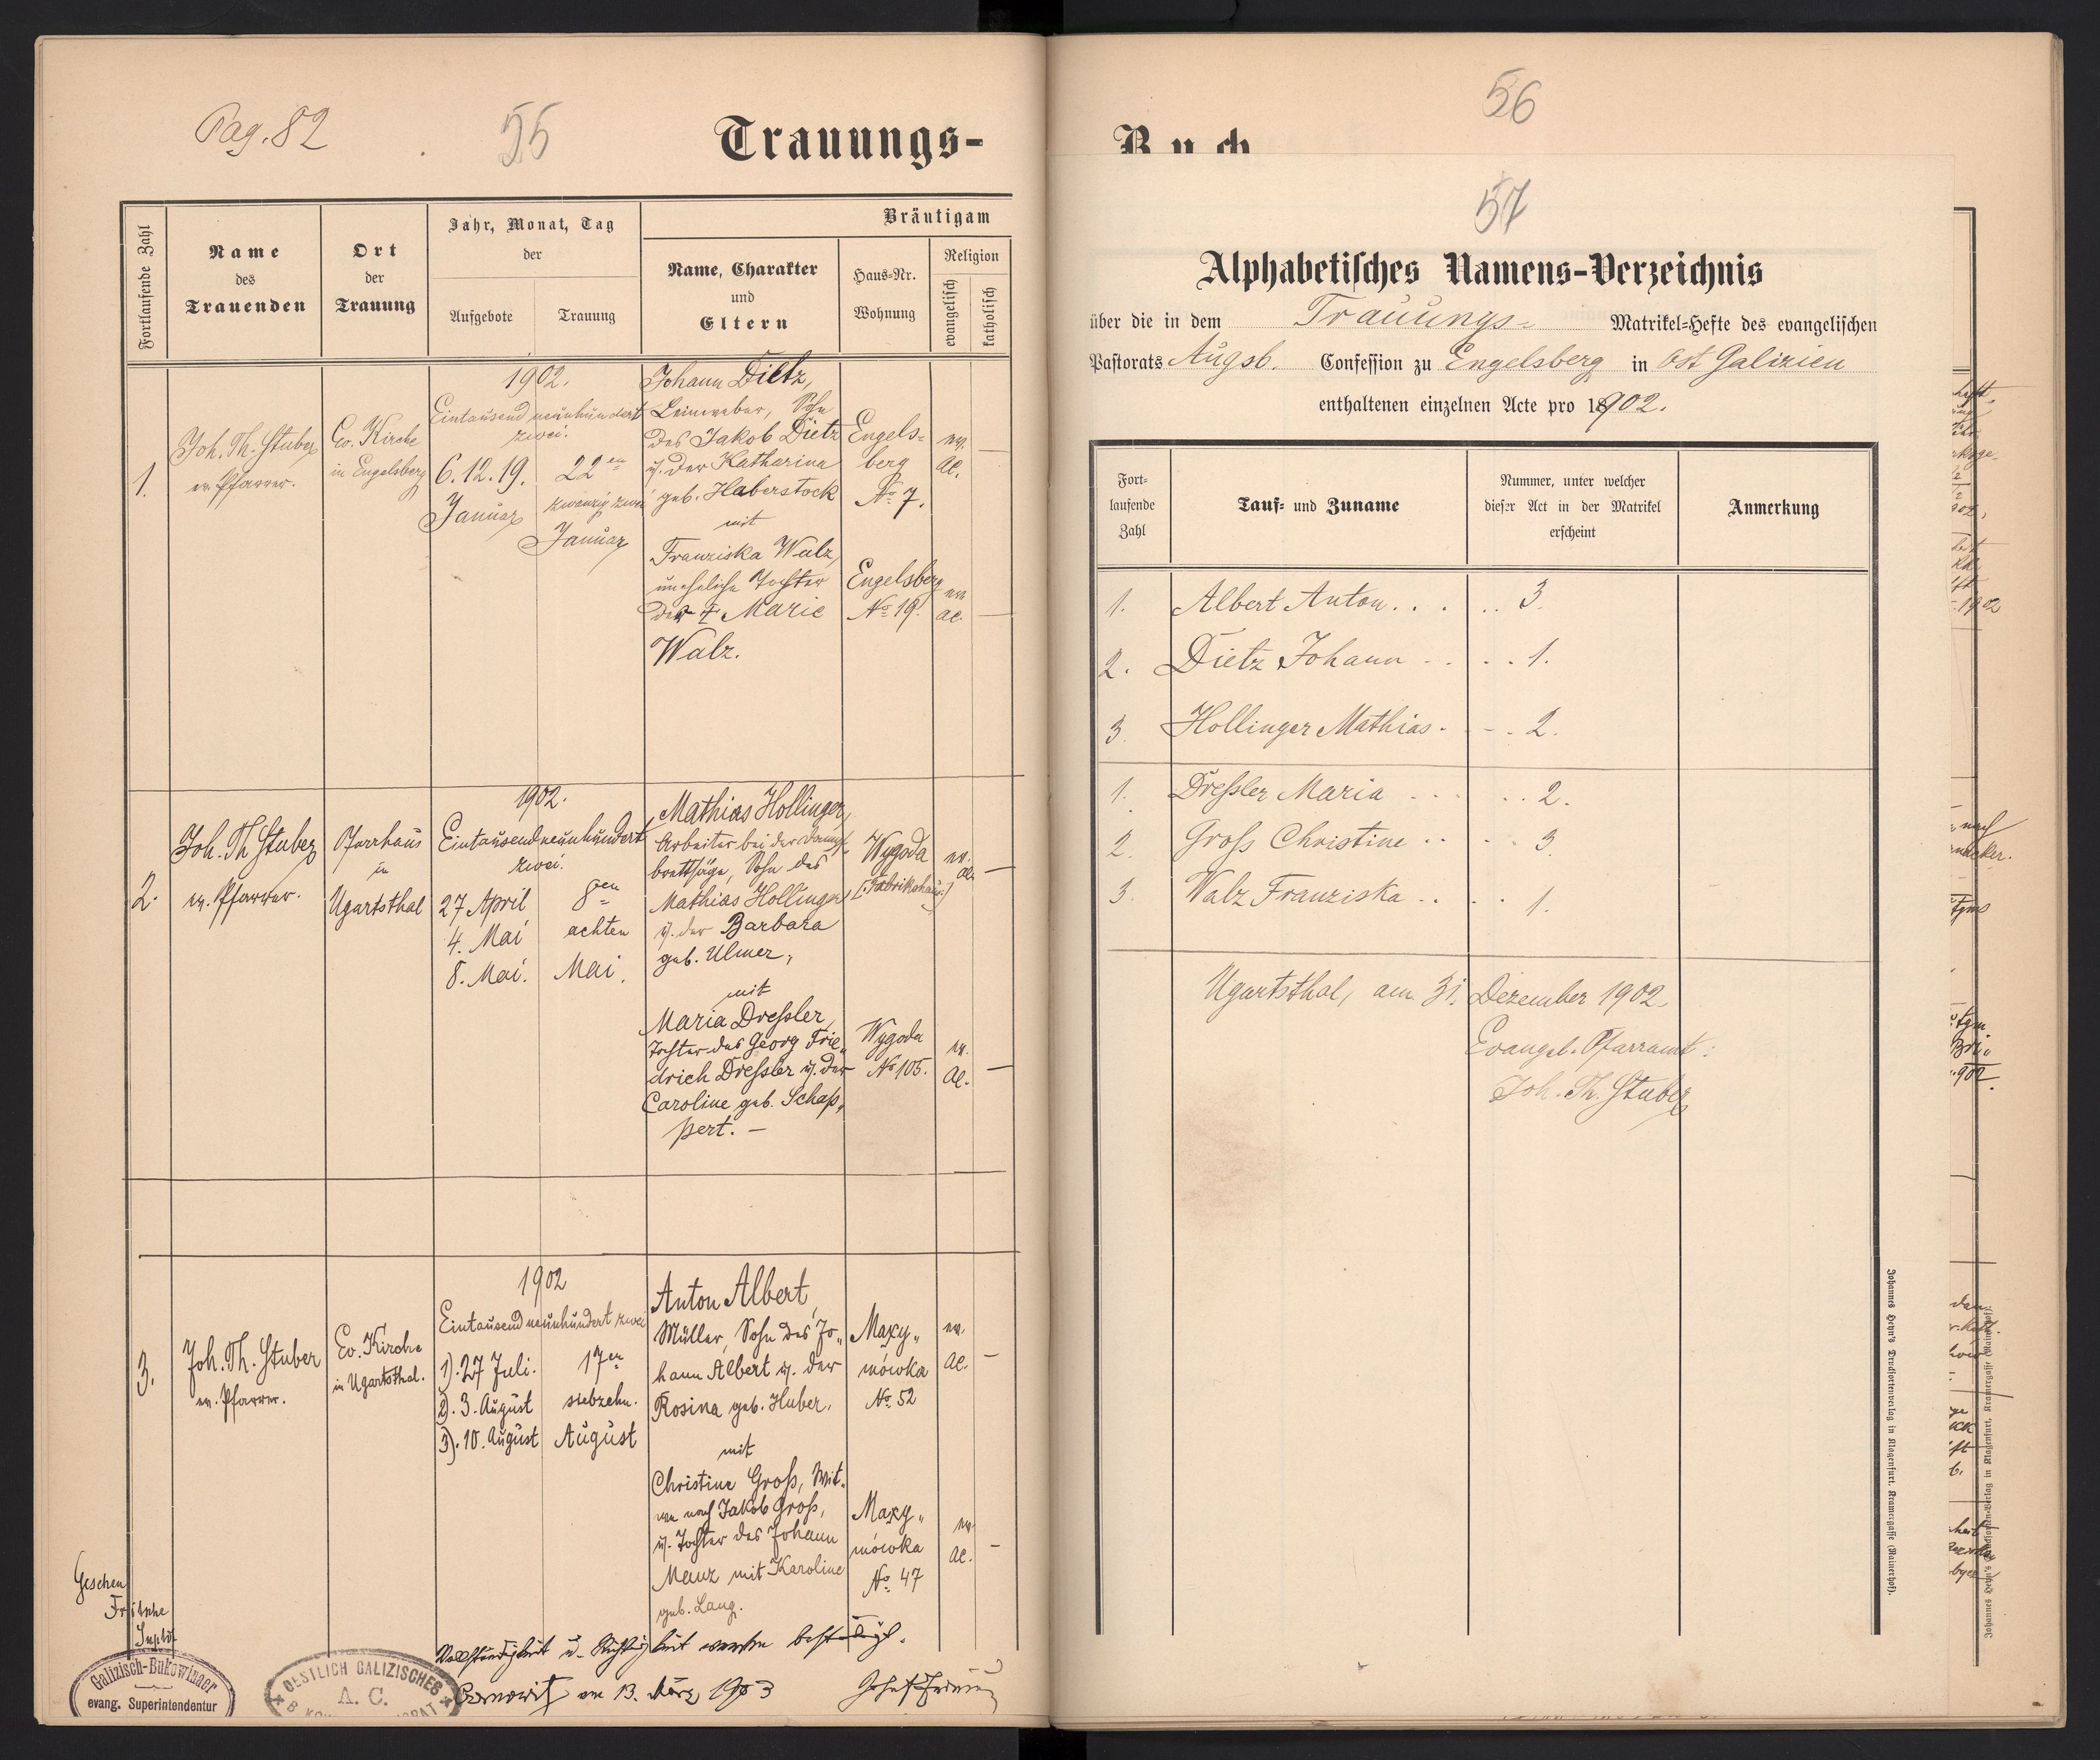 Pag. 82
55
Trauungs-
Fortlaufende Zahl
Name
des
Trauenden
Ort
der
Trauung
Jahr, Monat, Tag
der
Aufgebote
Trauung
Bräutigam
Name, Charakter
und
Eltern
Haus-Nr.
Wohnung
Religion
evangelisch
katholisch
1.
Joh. Th. Stuber
ev. Pfarrer.
Ev. Kirche
in Engelsberg
1902.
Eintausend neunhundert
zwei.
6. 12. 19.
Januar
22en
zwanzig zwei
Januar
Johann Dietz,
Leinweber, Sohn
des Jakob Dietz
u. der Katharina
geb. Haberstock
mit
Franziska Walz,
uneheliche Tochter
der † Marie
Walz.
Engels-
berg
No 7.
Engelsberg
No 19.
ev.
AC.
ev.
AC.
2.
Joh. Th. Stuber
ev. Pfarrer.
Pfarrhaus
in
Ugartsthal
1902.
Eintausendneunhundert
zwei.
27 April
4. Mai
8. Mai.
8en
achten
Mai.
Mathias Hollinger,
Arbeiter bei der Dampf-
brettsäge, Sohn des
Mathias Hollinger
u. der Barbara
geb. Ulmer,
mit
Maria Dreßler,
Tochter des Georg Frie-
drich Dreßler u. der
Caroline geb. Schap-
pert. –
Wygoda
[:Fabrikshaus:]
Wygoda
No 105.
ev.
AC.
ev.
AC.
3.
Joh. Th. Stuber
ev. Pfarrer.
Ev. Kirche
in Ugartsthal.
1902
Eintausend neunhundert zwei
1). 27 Juli.
2). 3. August
3). 10. August
17en
siebzehn.
August
Anton Albert,
Müller, Sohn des Jo-
hann Albert u. der
Rosina geb. Huber.
mit
Christine Groß, Wit-
we nach Jakob Groß,
u. Tochter des Johann
Manz mit Karoline
geb. Lang.
Maxy-
mówka
No 52
Maxy-
mówka
No 47
ev.
AC.
ev.
AC.
Vollständigkeit u. Richtigkeit werden bestätigt.
am 13. März 1903
Gesehen
Fritsche
Supdt
Galizisch-Bukowinaer
evang. Superintendentur
OESTLICH GALIZISCHES
A. C.
56
Buch
57
Alphabetisches Namens-Verzeichnis
über die in dem Trauungs- Matrikel-Hefte des evangelischen
Pastorats Augsb. Confession zu Engelsberg in Ost Galizien
enthaltenen einzelnen Acte pro 1902.
Fort-
laufende
Zahl
Tauf- und Zuname
Nummer, unter welcher
dieser Act in der Matrikel
erscheint
Anmerkung
1. Albert Anton . . . . . 3.
2. Dietz Johann . . . . 1.
3. Hollinger Mathias . . . 2.
1. Dreßler Maria . . . . . 2.
2. Groß Christine . . . . 3.
3. Walz Franziska . . . . 1.
Ugartsthal, am 31. Dezember 1902.
Evangel. Pfarramt:
Joh. Th. Stuber
Johannes Heyn's Drucksortenverlag in Klagenfurt, Kramergasse (Rainerhof).